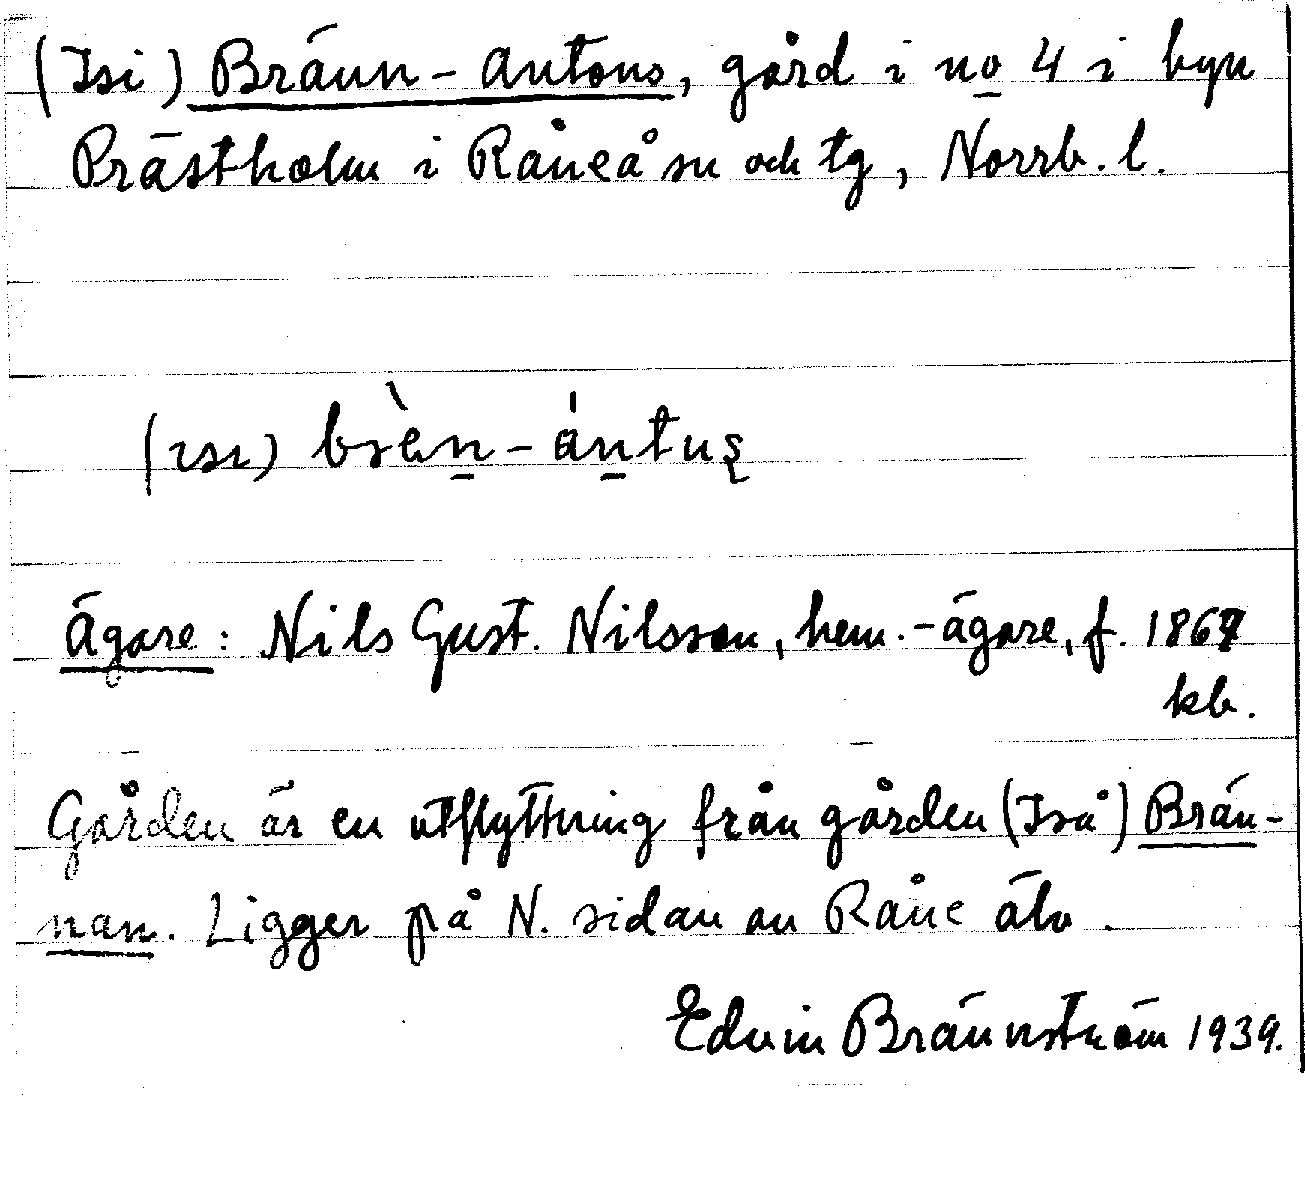 (Isi) Bränn-Antons, gård i no 4 i byn
Prästholm i Råneå sn och tg, Norrb. l.
(ısı) bsèn̲-án̲tuş
Ägare: Nils Gust. Nilsson, hem.-ägare, f. 1867
kb.
Gården är en utflyttning från gården (Iså) Brän-
nan. Ligger på N. sidan av Råne älv.
Edvin Brännström 1939.